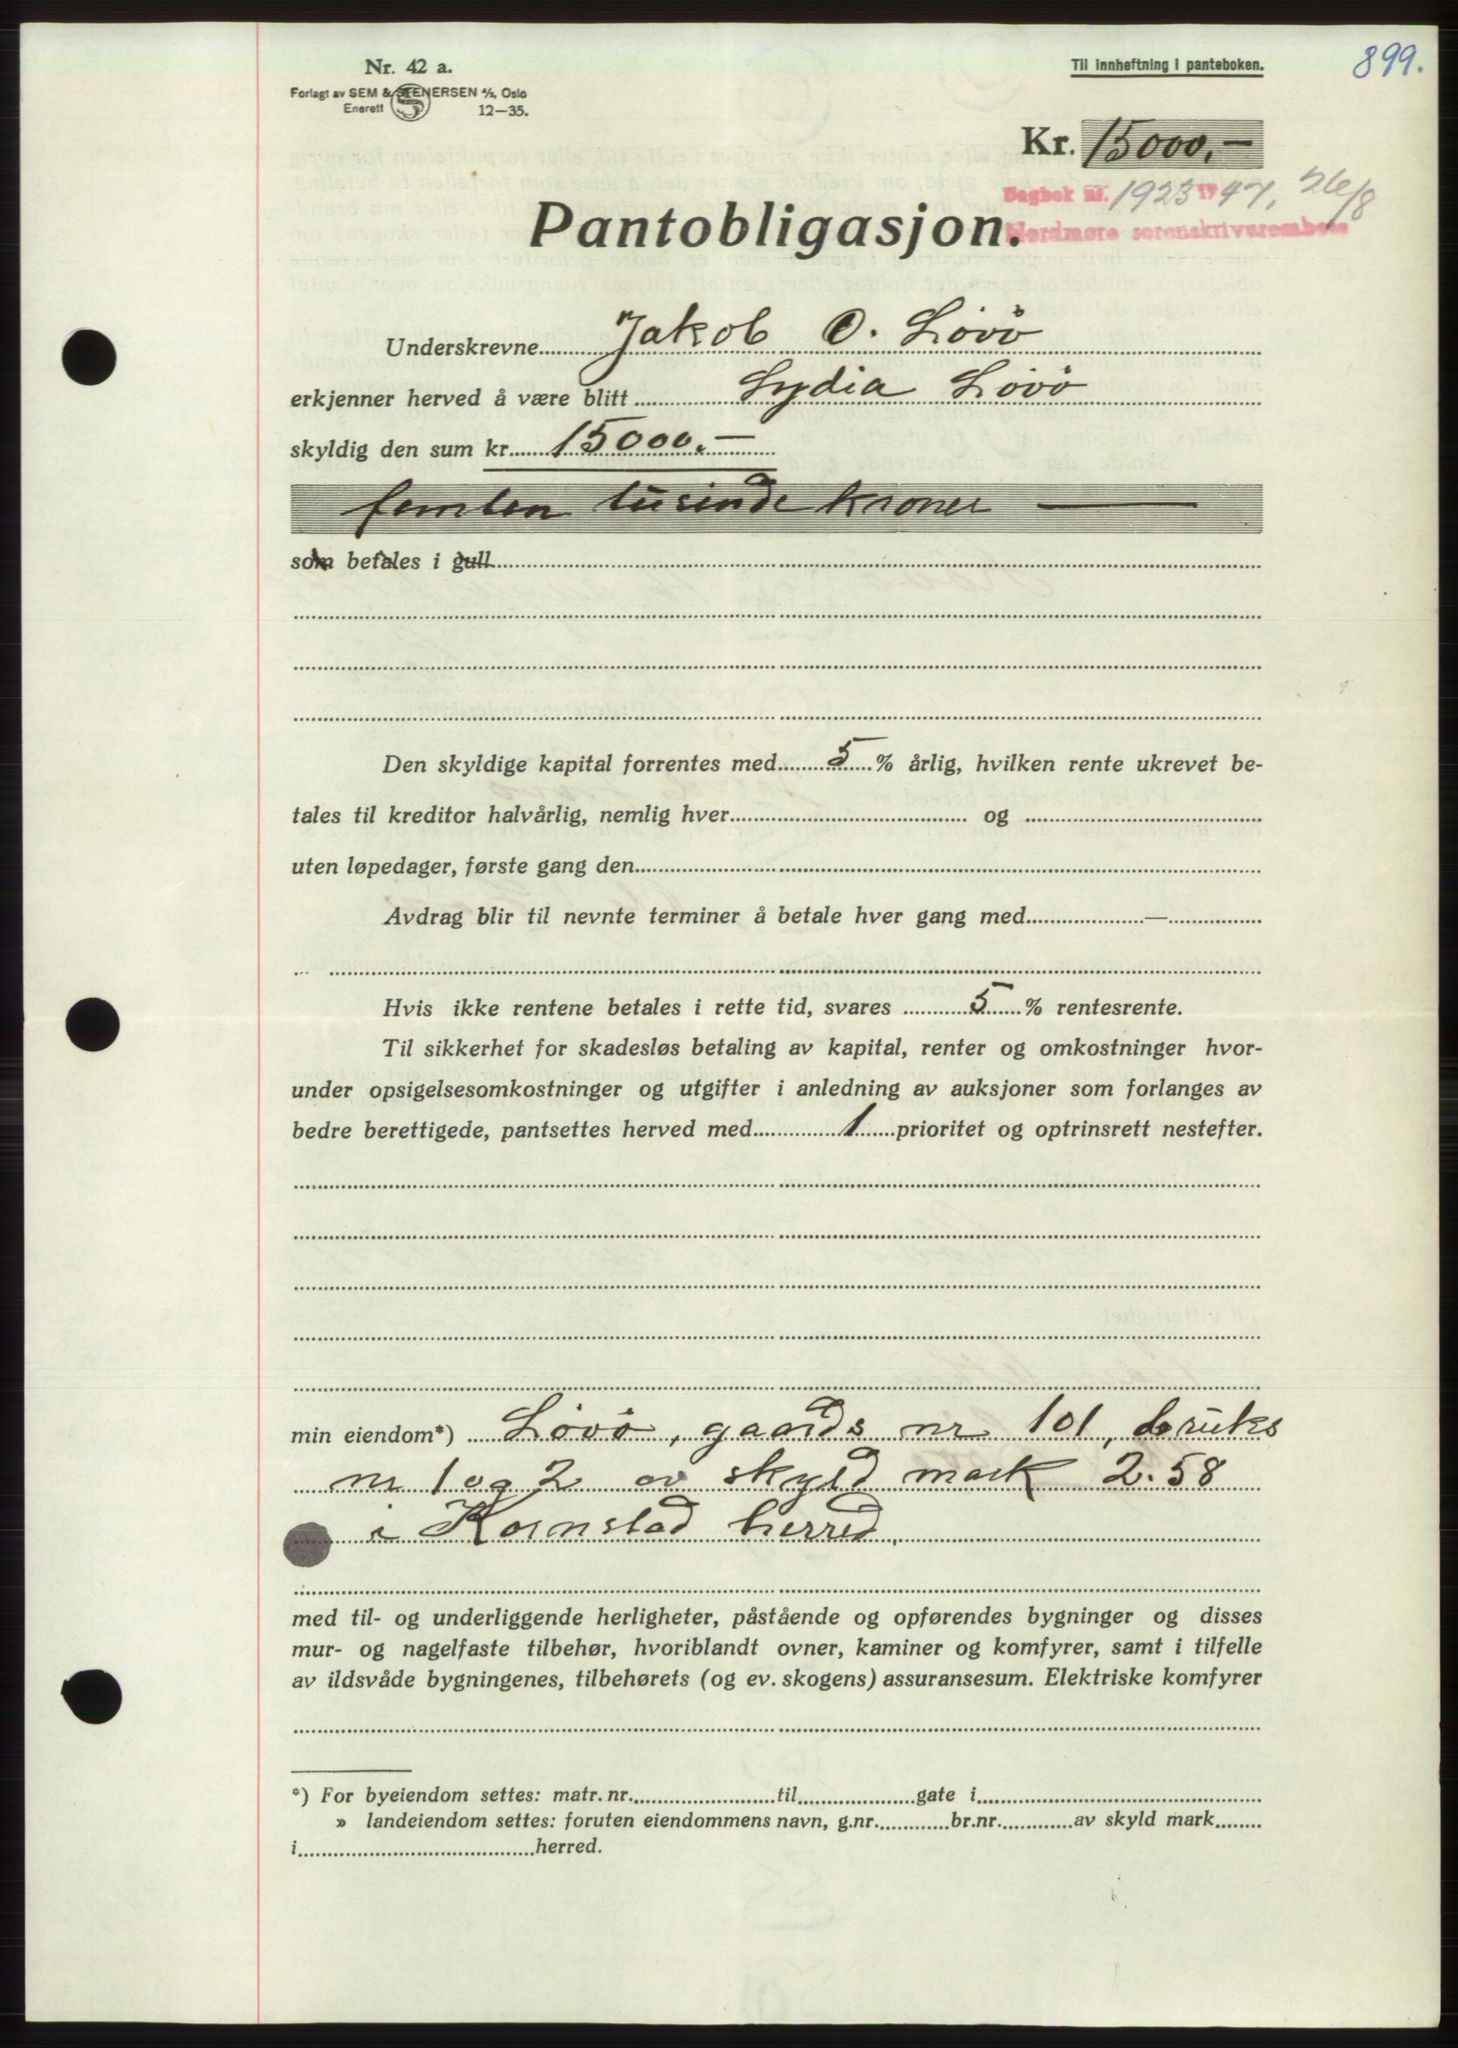 899.
Nr. 42 a.
Til innheftning i panteboken.
Forlagt av SEM & STENERSEN A/S, Oslo
Enerett 12—35.
Kr. 15000.—
Dagbok nr. 1923 1947, 26/8
Nordmøre sorenskriverembete
Pantobligasjon.
Underskrevne Jakob O. Lövö
erkjenner herved å være blitt Lydia Lövö
skyldig den sum kr. 15000.—
femten tusinde kroner —
som betales i gull
Den skyldige kapital forrentes med 5 % årlig, hvilken rente ukrevet be-
tales til kreditor halvårlig, nemlig hver og
uten løpedager, første gang den
Avdrag blir til nevnte terminer å betale hver gang med —
Hvis ikke rentene betales i rette tid, svares 5 % rentesrente.
Til sikkerhet for skadesløs betaling av kapital, renter og omkostninger hvor-
under opsigelsesomkostninger og utgifter i anledning av auksjoner som forlanges av
bedre berettigede, pantsettes herved med 1 prioritet og optrinsrett nestefter.
min eiendom*) Lövö, gaards nr 101, bruks
nr 1 og 2 av skyld mark 2.58
i Kornstad herred,
med til- og underliggende herligheter, påstående og opførendes bygninger og disses
mur- og nagelfaste tilbehør, hvoriblandt ovner, kaminer og komfyrer, samt i tilfelle
av ildsvåde bygningenes, tilbehørets (og ev. skogens) assuransesum. Elektriske komfyrer
*) For byeiendom settes: matr. nr. til gate i
» landeiendom settes: foruten eiendommens navn, g.nr. br.nr. av skyld mark
i herred.